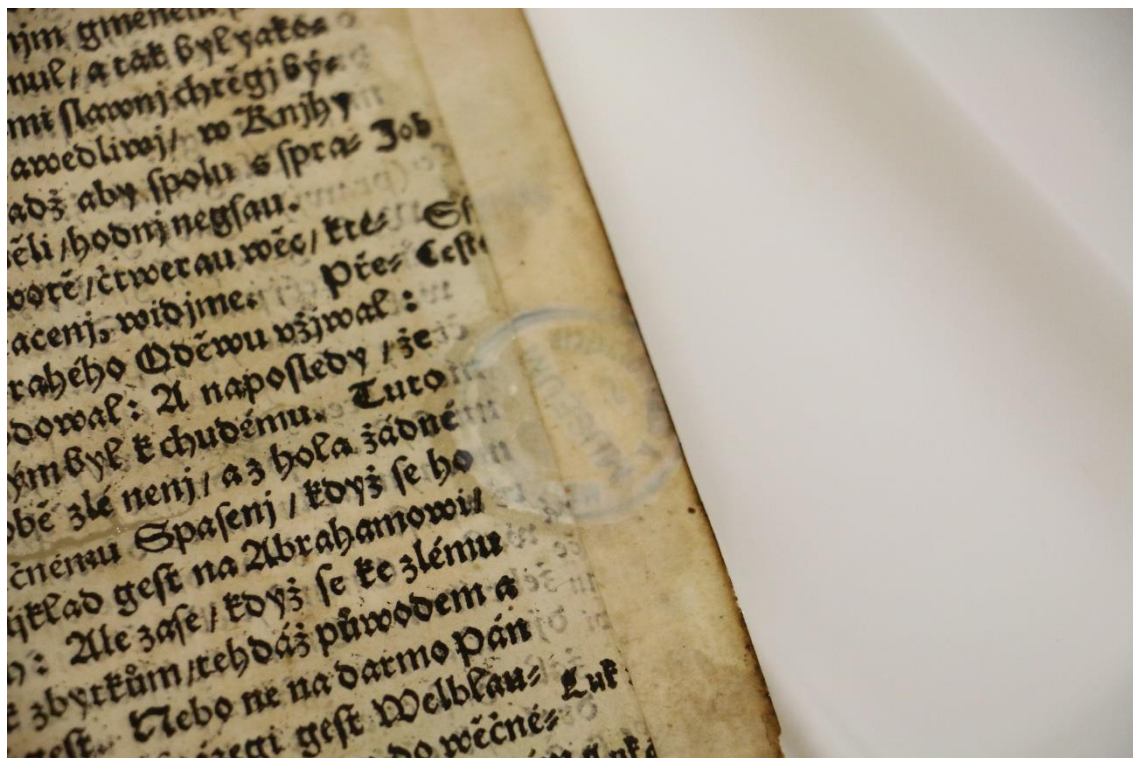 gménem
nul / a tak byl yako⸗
mi slawnj chtěgj bý⸗
awedliwj / w Knjhy
adž aby spolu s spra⸗ Job
ěli / hodnj negsau.
wotě / čtwerau wěc / kte⸗
acenj, widjme. Pře⸗
rahého Oděwu vžjwal :
dowal : A naposledy / že
ým byl k chudému. Tuto
obě zlé nenj / a z hola žádné
čnému Spasenj / když se ho
ýklad gest na Abrahamowi /
: Ale zase / když se ke zlému
zbytkům / tehdáž půwodem a
gest. Nebo ne nadarmo Pán
gest Welblau⸗ Luk
do wěčné⸗